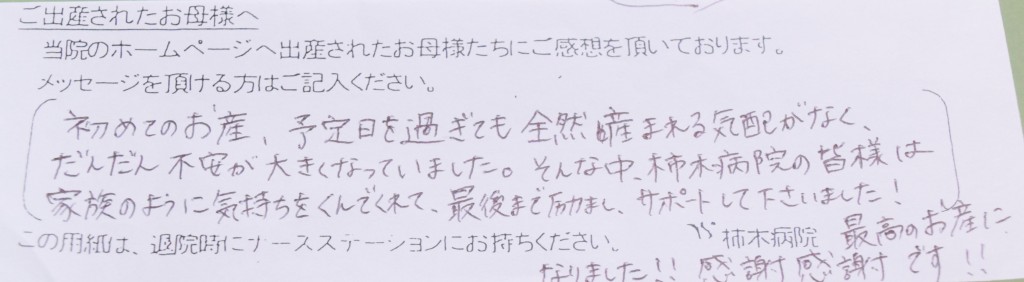 ご出産されたお母様へ
当院のホームページへ出産されたお母様たちにご感想を頂いております。
メッセージを頂ける方はご記入ください。
初めてのお産、予定日を過ぎても全然産まれる気配がなく、
だんだん不安が大きくなっていました。そんな中、柿木病院の皆様は
家族のように気持ちをくんでくれて、最後まで励まし、サポートして下さいました!
この用紙は、退院時にナースステーションにお持ちください。
柿木病院 最高のお産に
なりました!! 感謝感謝です!!